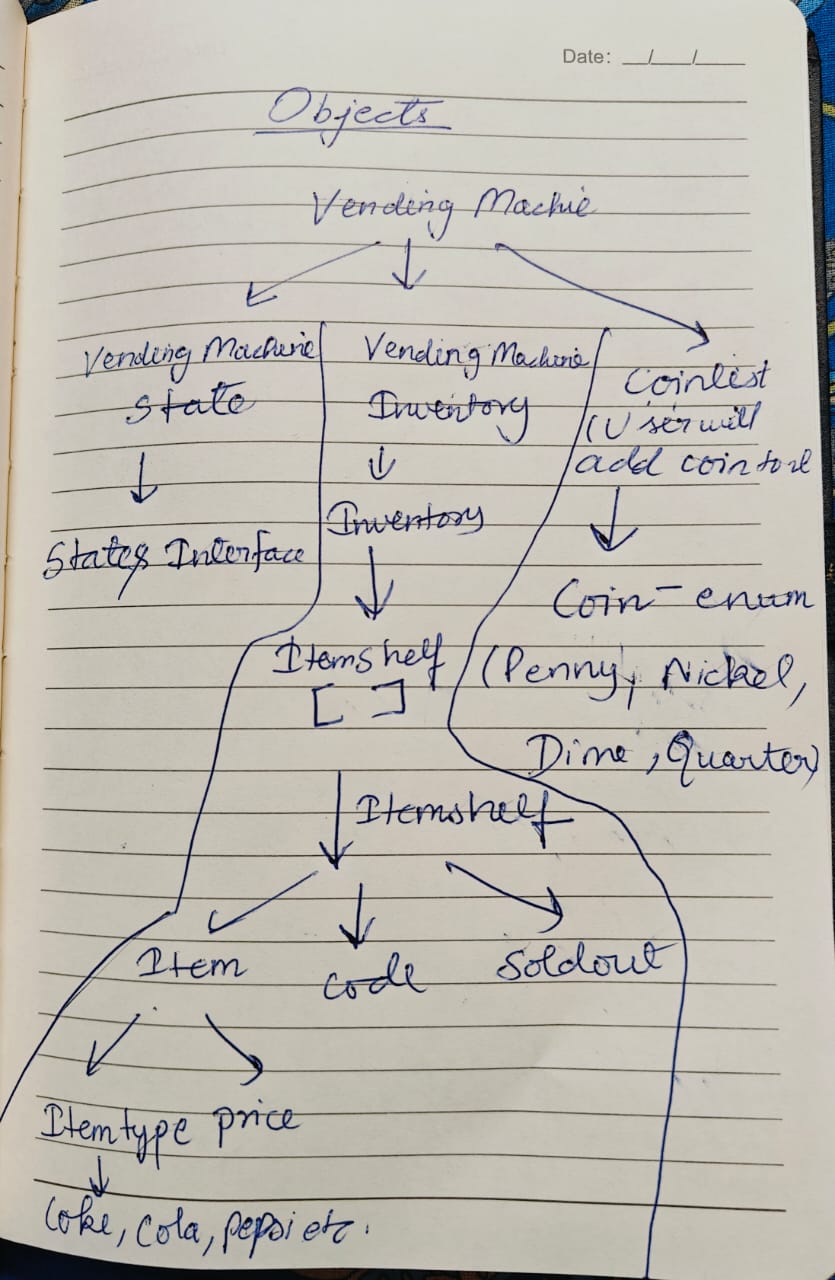 Date: __/__/__
Objects
Vending Machie
Vending Machine
State
States Interface
Vending Machine
Inventory
Inventory
Itemshelf
[ ]
Itemshelf
Item
code
Soldout
Itemtype
price
Coke, Cola, pepsi etc.
Coinlist
(User will
add coin to it
Coin - enum
(Penny, Nickel,
Dime, Quarter)